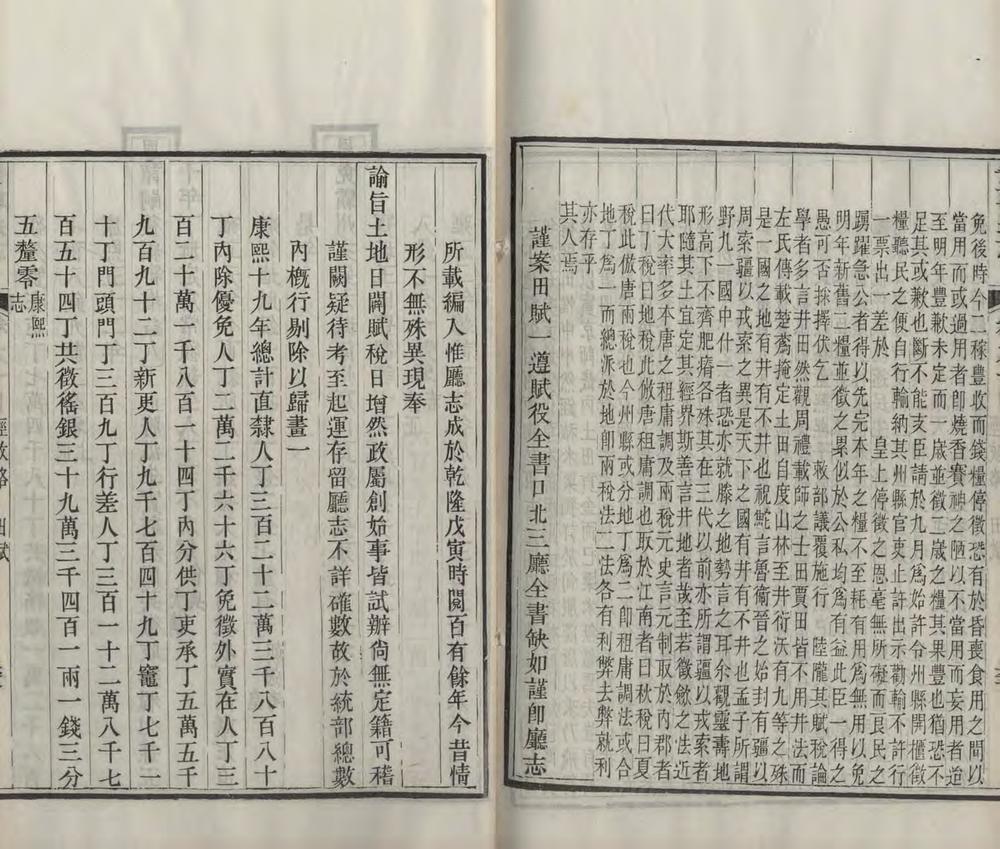 免後時今二稼豊收而錢糧停徵恐有於昏喪食用之間以
當用而或過用者卽燒香賽神之陋以不當用而妄用者迨
至明年豐歉未定而一歲並徵二歲之糧其果豐也猶恐不
足其或歉也斷不能支臣請於九月爲始許令州縣開櫃徵
糧聽民之便自行輸納其州縣官吏止許出示勸輸不許行
一票出一差於 皇上停徵之恩毫無所礙而良民之
踴躍急公者得以先完本年之糧不至耗有用爲無用以免
明年新舊二糧並徵之累似於公私均爲有益此臣一得之
愚可否採擇伏乞 敕部議覆施行 陸隴其賦稅論
學者多言井田然觀周禮載師之士田賈田皆不用井法而
左氏傳載楚蒍掩定土田自度山林至井衍沃有九等之殊
是一國之地有井有不井也視鮀言魯衞晉之始封有疆以
周索疆以戎索之異是天下之國有井有不井也孟子所謂
野九一國中什一者恐亦就滕之地勢言之耳余觀靈壽地
形高下不齊肥瘠各殊其在三代以前亦所謂疆以戎索者
耶隨其土宜定其經界斯善言井地者哉至若徵斂之法近
代大率多本唐之租庸調及兩稅元史言元制取於內郡者
曰丁稅曰地稅此倣唐租庸調也取於江南者曰秋稅曰夏
稅此倣唐兩稅也今州縣或分地丁爲二卽租庸調法或合
地丁爲一而總派於地卽兩稅法二法各有利弊去弊就利
亦存乎
其人焉
謹案田賦一遵賦役全書口北三廳全書缺如謹卽廳志
所載編入惟廳志成於乾隆戊寅時閱百有餘年今昔情
形不無殊異現奉
諭旨土地日闢賦稅日增然政屬創始事皆試辦尙無定籍可稽
謹闕疑待考至起運存留廳志不詳確數故於統部總數
內槪行剔除以歸畫一
康熙十九年總計直隸人丁三百二十二萬三千八百八十
丁內除優免人丁二萬二千六十六丁免徵外實在人丁三
百二十萬一千八百一十四丁內分供丁吏承丁五萬五千
九百九十二丁新更人丁九千七百四十九丁竈丁七千一
十丁門頭門丁三百九丁行差人丁三百一十二萬八千七
百五十四丁共徵徭銀三十九萬三千四百一兩一錢三分
五釐零康熙志